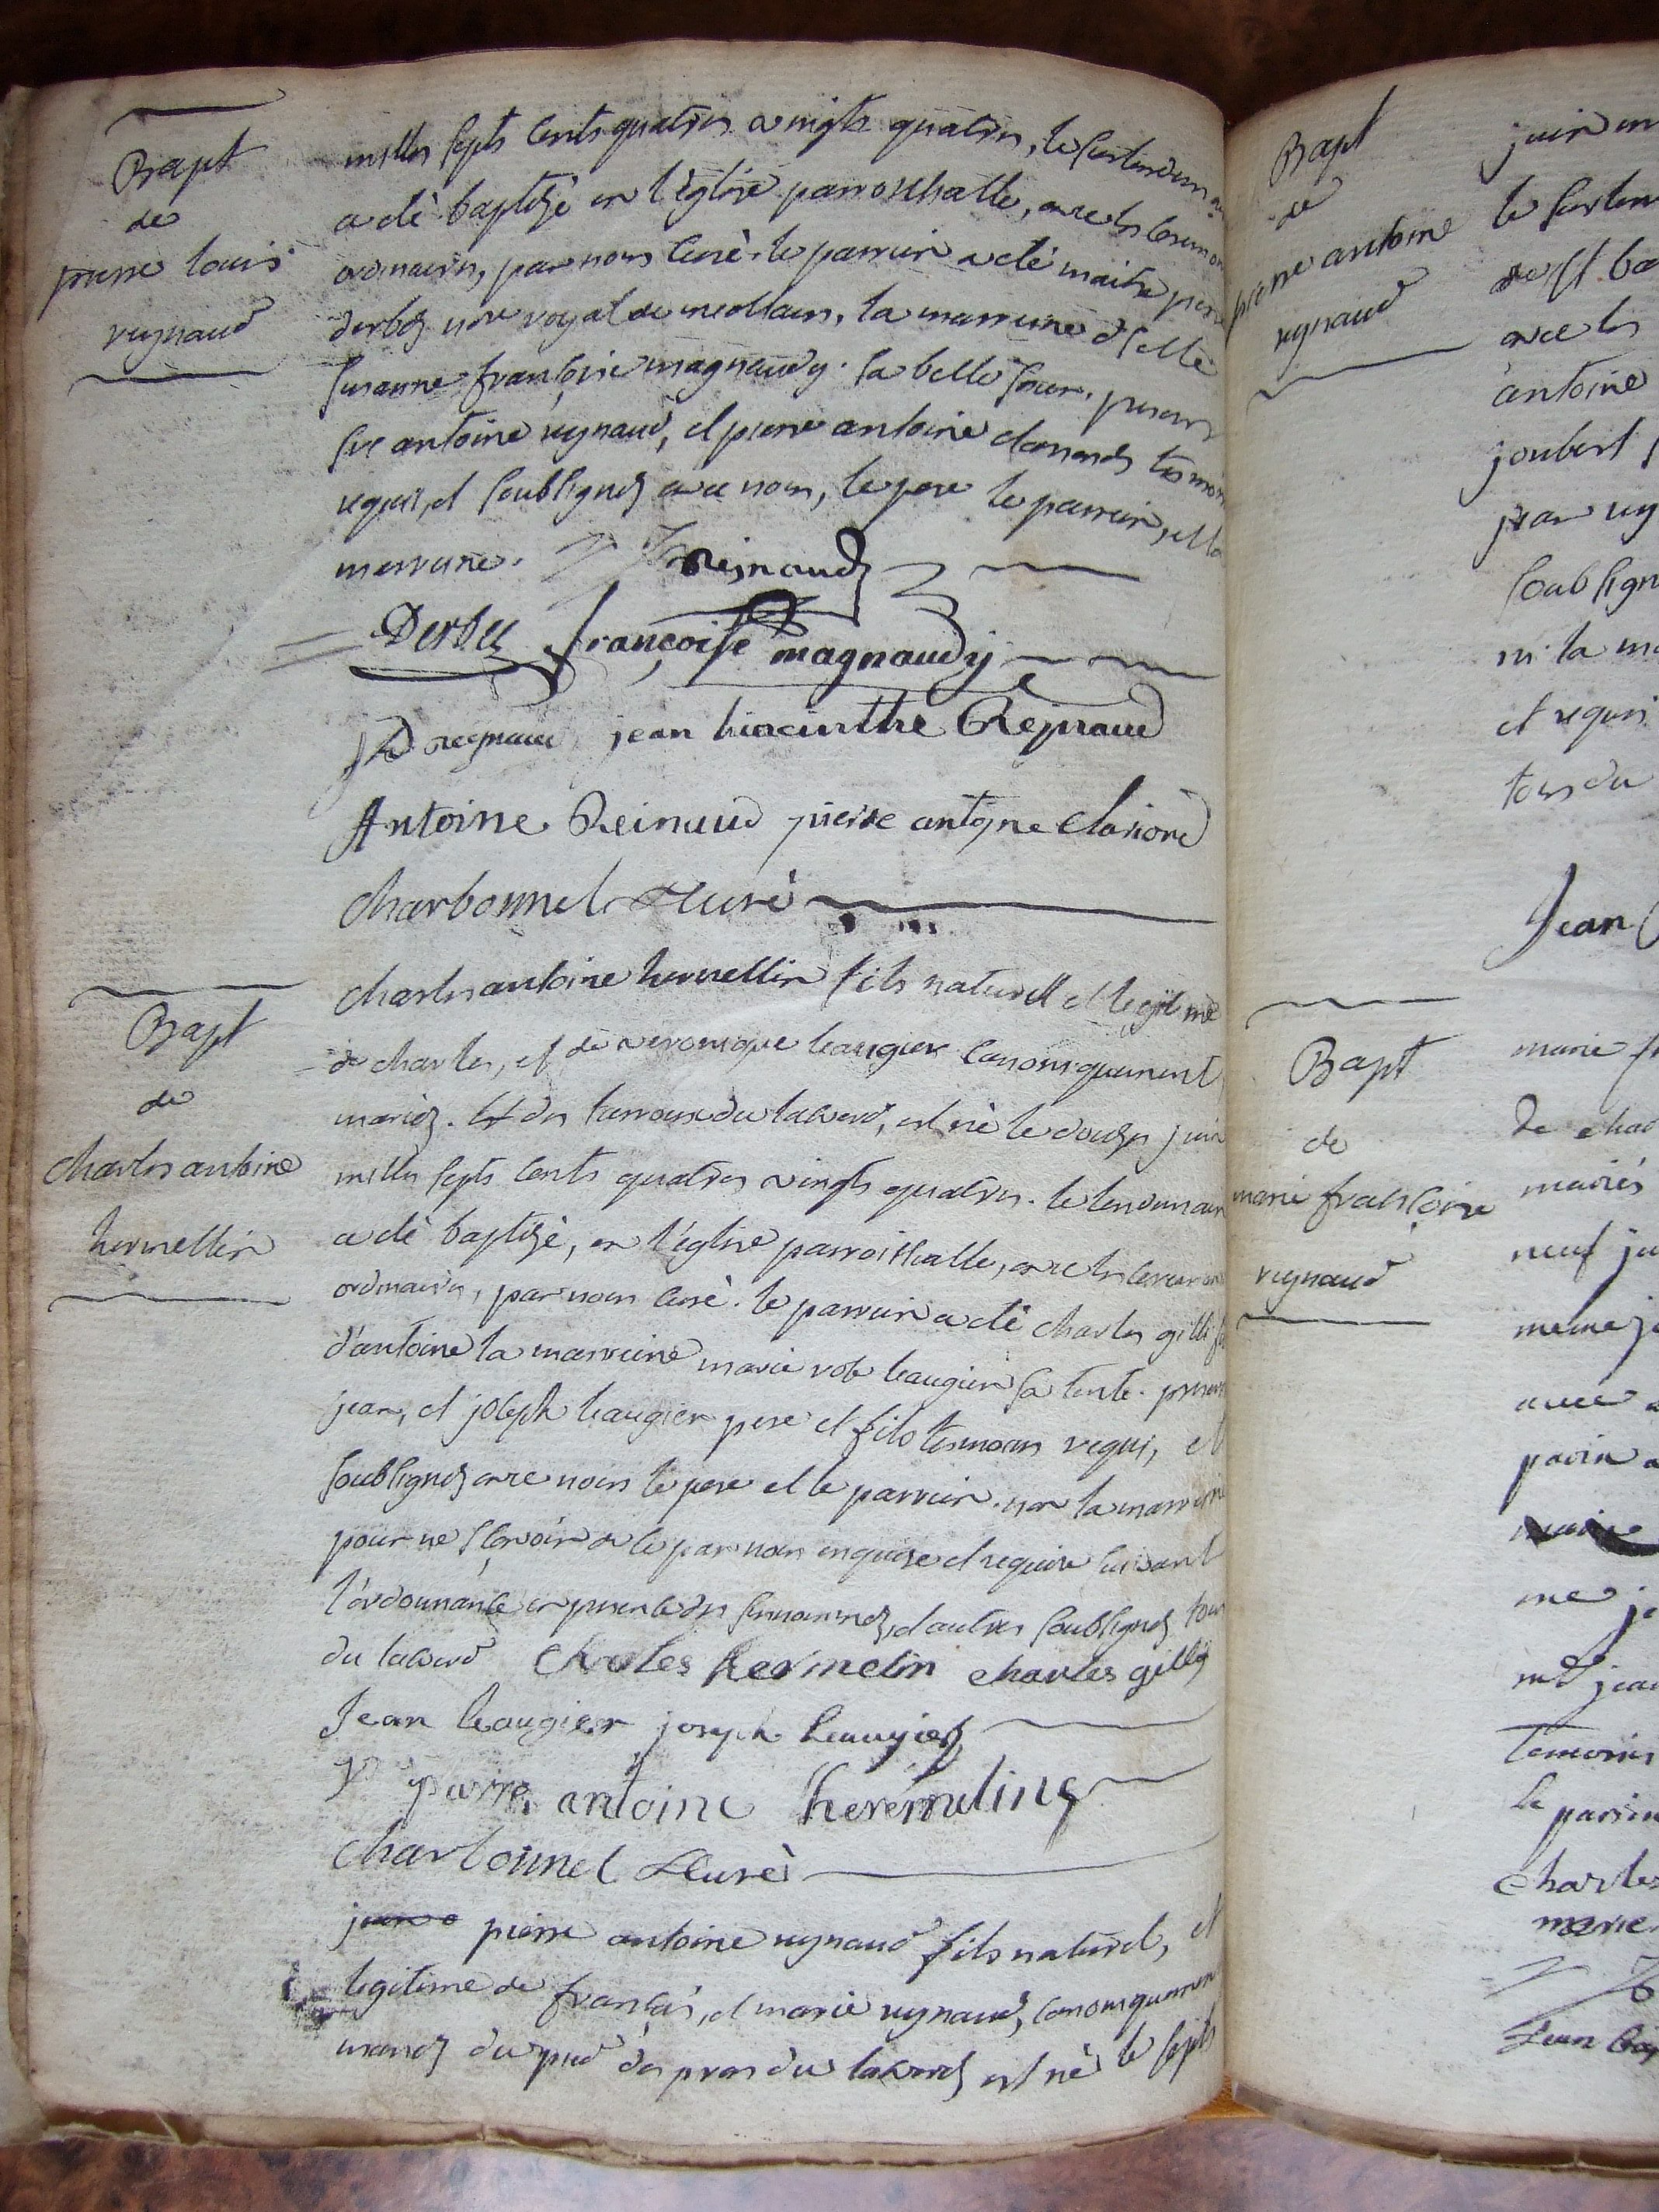 Bapt
de
pierre louis
reynaud
milles septs cents quatres vingts quatres, le surlendemain
a été baptizé en l'église parroissialle, avec les ceremon
ordinaires, par nous curé. le parrein a été maitre pierre
derbez nore royal de meolans, la marreine dslle
susanne françoise magnaudy. sa belle soeur. presens
sre antoine reynaud, et pierre antoine clariond tesmoins
requis, et soubsignés avec nous, le pere le parrein, et la
marreine. Reinaud
Derbez françoise magnaudy
reynaud jean hiacinthe Rejnaud
Antoine Reinaud pierre antoine clariond
charbonnel curè
Bapt
de
charles antoine
hermellin
charles antoine hermellin fils naturell et legitime
de charles, et de veronique leaugier canoniquement
mariés. des du laverd, est né le douzes juin
milles septs cents quatres vingts quatres. le lendemain
a été baptizé, en l'église parroissialle, avec les ceremon
ordinaires, par nous curé. le parrein a été charles gilli fils
d'antoine la marreine marie rose leaugier sa tente. presens
jean, et joseph leaugier pere et fils tesmoins requis, et
soubsignés avec nous le pere et le parrein. non la marreine
pour ne sçavoir de le par nous enquise et requise suivant
l'ordonnance en presence des surnommés, et autres soubsignés tous
du laverd charles hermelin charles gilly
Jean leaugier joseph leaugier
pierre antoine heremeling
charbonnel curè
pierre antoine reynaud fils naturel, et
legitime de françois, et marie reynaud, canoniquement
mariés du pied des pras du laverd est né le septs
Bapt
de
pierre antoine
reynaud
juin m
le surlen
est ba
avec les
antoine
joubert f
jean rey
soubsign
ni la ma
et requis
tous du
Jean
Bapt
de
marie françoise
reynaud
marie fr
de char
mariés
neuf ju
meme jo
avec
parin a
me je
jean
temoins
le parin
charles
marie
Jean